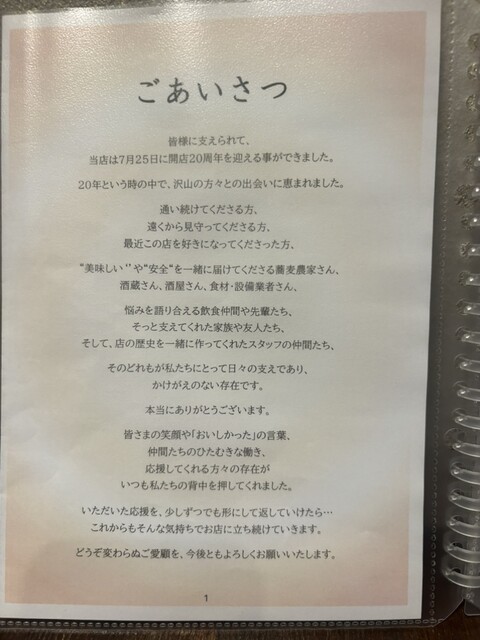 ごあいさつ
皆様に支えられて、
当店は7月25日に開店20周年を迎える事ができました。
20年という時の中で、沢山の方々との出会いに恵まれました。
通い続けてくださる方、
遠くから見守ってくださる方、
最近この店を好きになってくださった方、
“美味しい‘’や“安全“を一緒に届けてくださる蕎麦農家さん、
酒蔵さん、酒屋さん、食材・設備業者さん、
悩みを語り合える飲食仲間や先輩たち、
そっと支えてくれた家族や友人たち、
そして、店の歴史を一緒に作ってくれたスタッフの仲間たち、
そのどれもが私たちにとって日々の支えであり、
かけがえのない存在です。
本当にありがとうございます。
皆さまの笑顔や「おいしかった」の言葉、
仲間たちのひたむきな働き、
応援してくれる方々の存在が
いつも私たちの背中を押してくれました。
いただいた応援を、少しずつでも形にして返していけたら…
これからもそんな気持ちでお店に立ち続けていきます。
どうぞ変わらぬご愛顧を、今後ともよろしくお願いいたします。
1